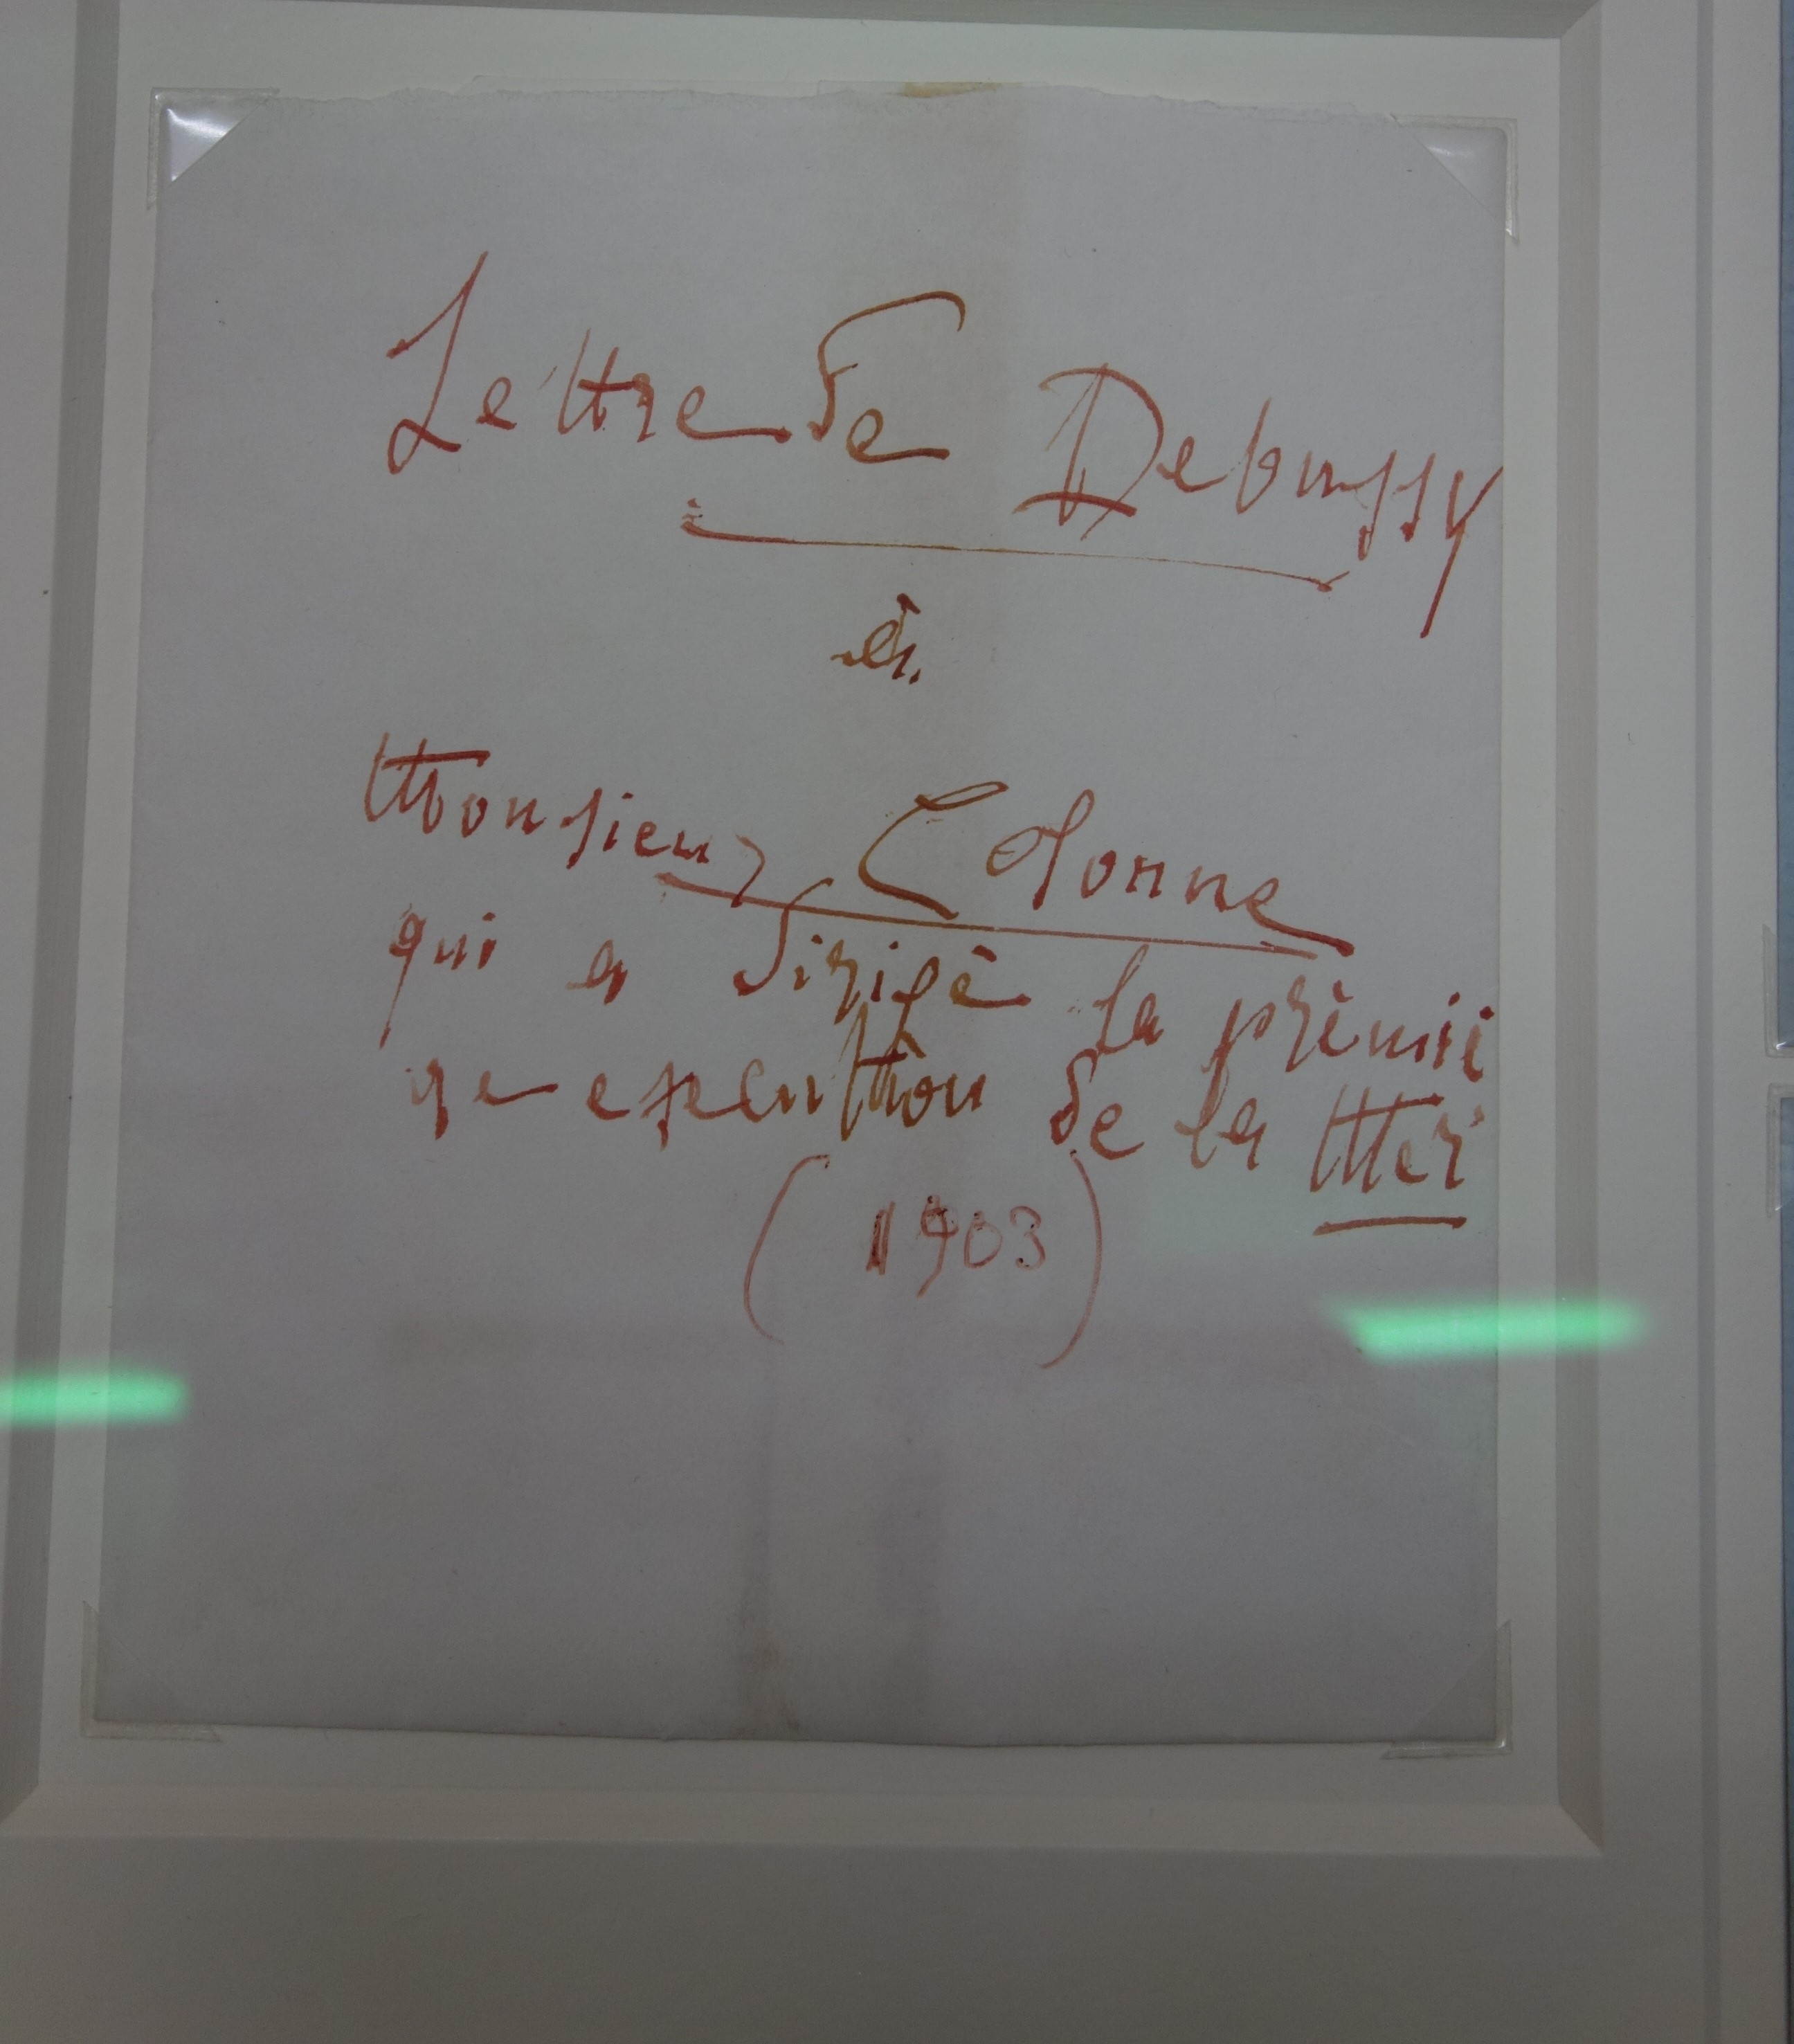 Lettre de Debussy
à
Monsieur Colonne
qui a dirigé la prèmiè
re execution de la Mer
(1903)